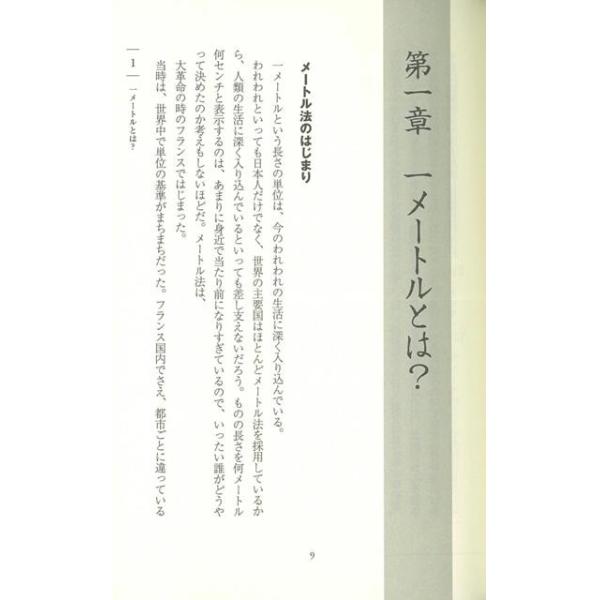 第一章　一メートルとは？
メートル法のはじまり
一メートルという長さの単位は、今のわれわれの生活に深く入り込んでいる。
われわれといっても日本人だけでなく、世界の主要国はほとんどメートル法を採用しているか
ら、人類の生活に深く入り込んでいるといっても差し支えないだろう。ものの長さを何メートル
何センチと表示するのは、あまりに身近で当たり前になりすぎているので、いったい誰がどうや
って決めたのか考えもしないほどだ。メートル法は、
大革命の時のフランスではじまった。
当時は、世界中で単位の基準がまちまちだった。フランス国内でさえ、都市ごとに違っている
1 一メートルとは？
9